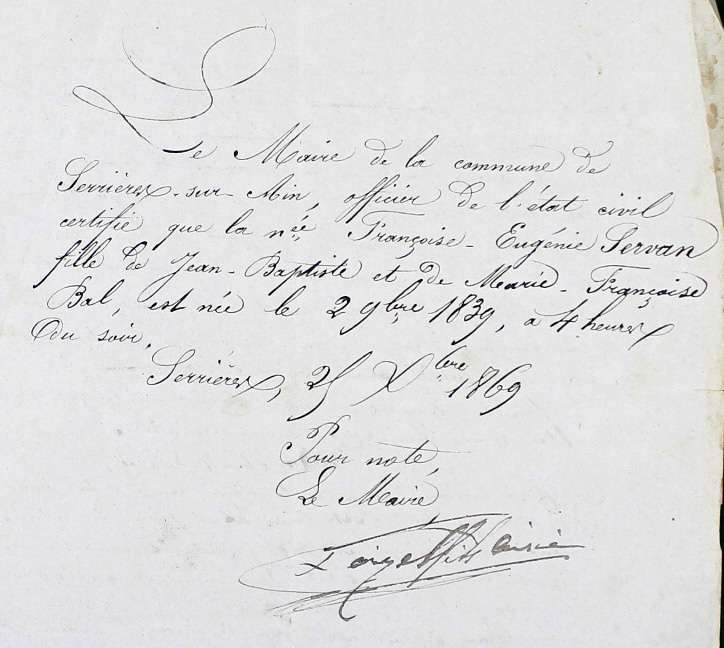 Le Maire de la commune de
Serrières-sur-Ain, officier de l'état civil
certifie que la née Françoise-Eugénie Servan
fille de Jean-Baptiste et de Marie-Françoise
Bal, est née le 2 9bre 1839, à 4 heures
du soir.
Serrières, 25 Xbre 1869
Pour note,
Le Maire,